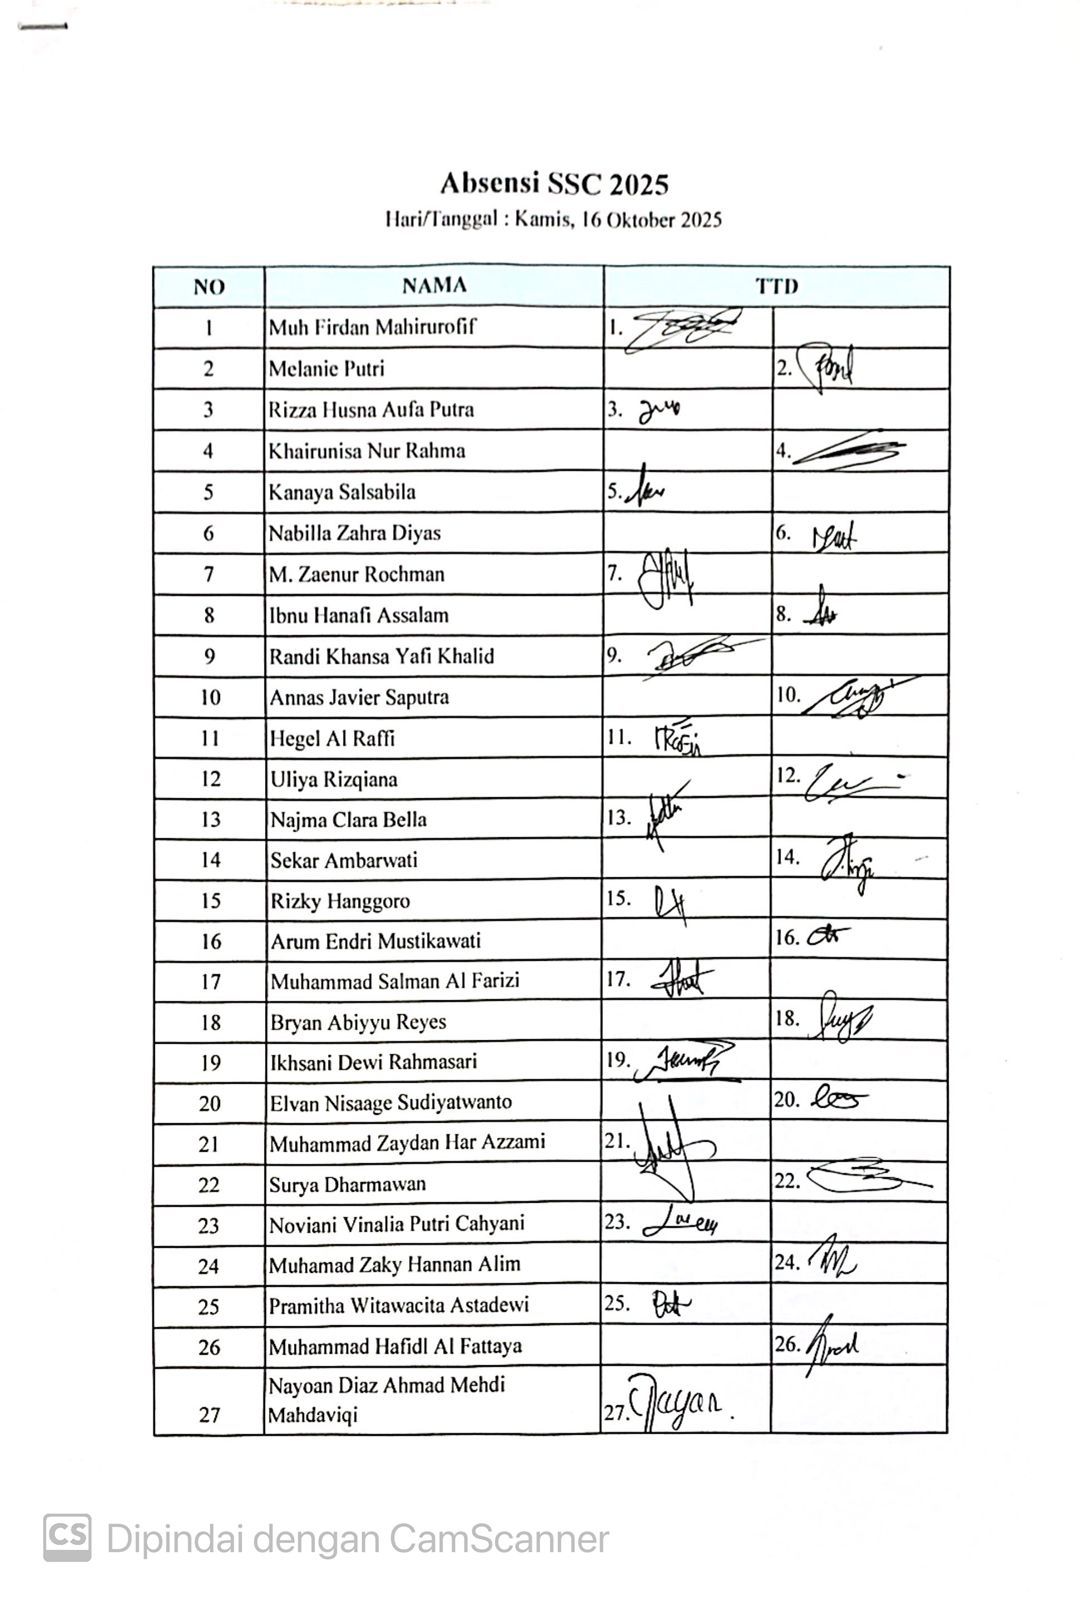 Absensi SSC 2025
Hari/Tanggal : Kamis, 16 Oktober 2025
NO NAMA TTD
1 Muh Firdan Mahirurofif 1.
2 Melanie Putri 2.
3 Rizza Husna Aufa Putra 3.
4 Khairunisa Nur Rahma 4.
5 Kanaya Salsabila 5.
6 Nabilla Zahra Diyas 6.
7 M. Zaenur Rochman 7.
8 Ibnu Hanafi Assalam 8.
9 Randi Khansa Yafi Khalid 9.
10 Annas Javier Saputra 10.
11 Hegel Al Raffi 11.
12 Uliya Rizqiana 12.
13 Najma Clara Bella 13.
14 Sekar Ambarwati 14.
15 Rizky Hanggoro 15.
16 Arum Endri Mustikawati 16.
17 Muhammad Salman Al Farizi 17.
18 Bryan Abiyyu Reyes 18.
19 Ikhsani Dewi Rahmasari 19.
20 Elvan Nisaage Sudiyatwanto 20.
21 Muhammad Zaydan Har Azzami 21.
22 Surya Dharmawan 22.
23 Noviani Vinalia Putri Cahyani 23.
24 Muhamad Zaky Hannan Alim 24.
25 Pramitha Witawacita Astadewi 25.
26 Muhammad Hafidl Al Fattaya 26.
Nayoan Diaz Ahmad Mehdi
27 Mahdaviqi 27.
CS Dipindai dengan CamScanner